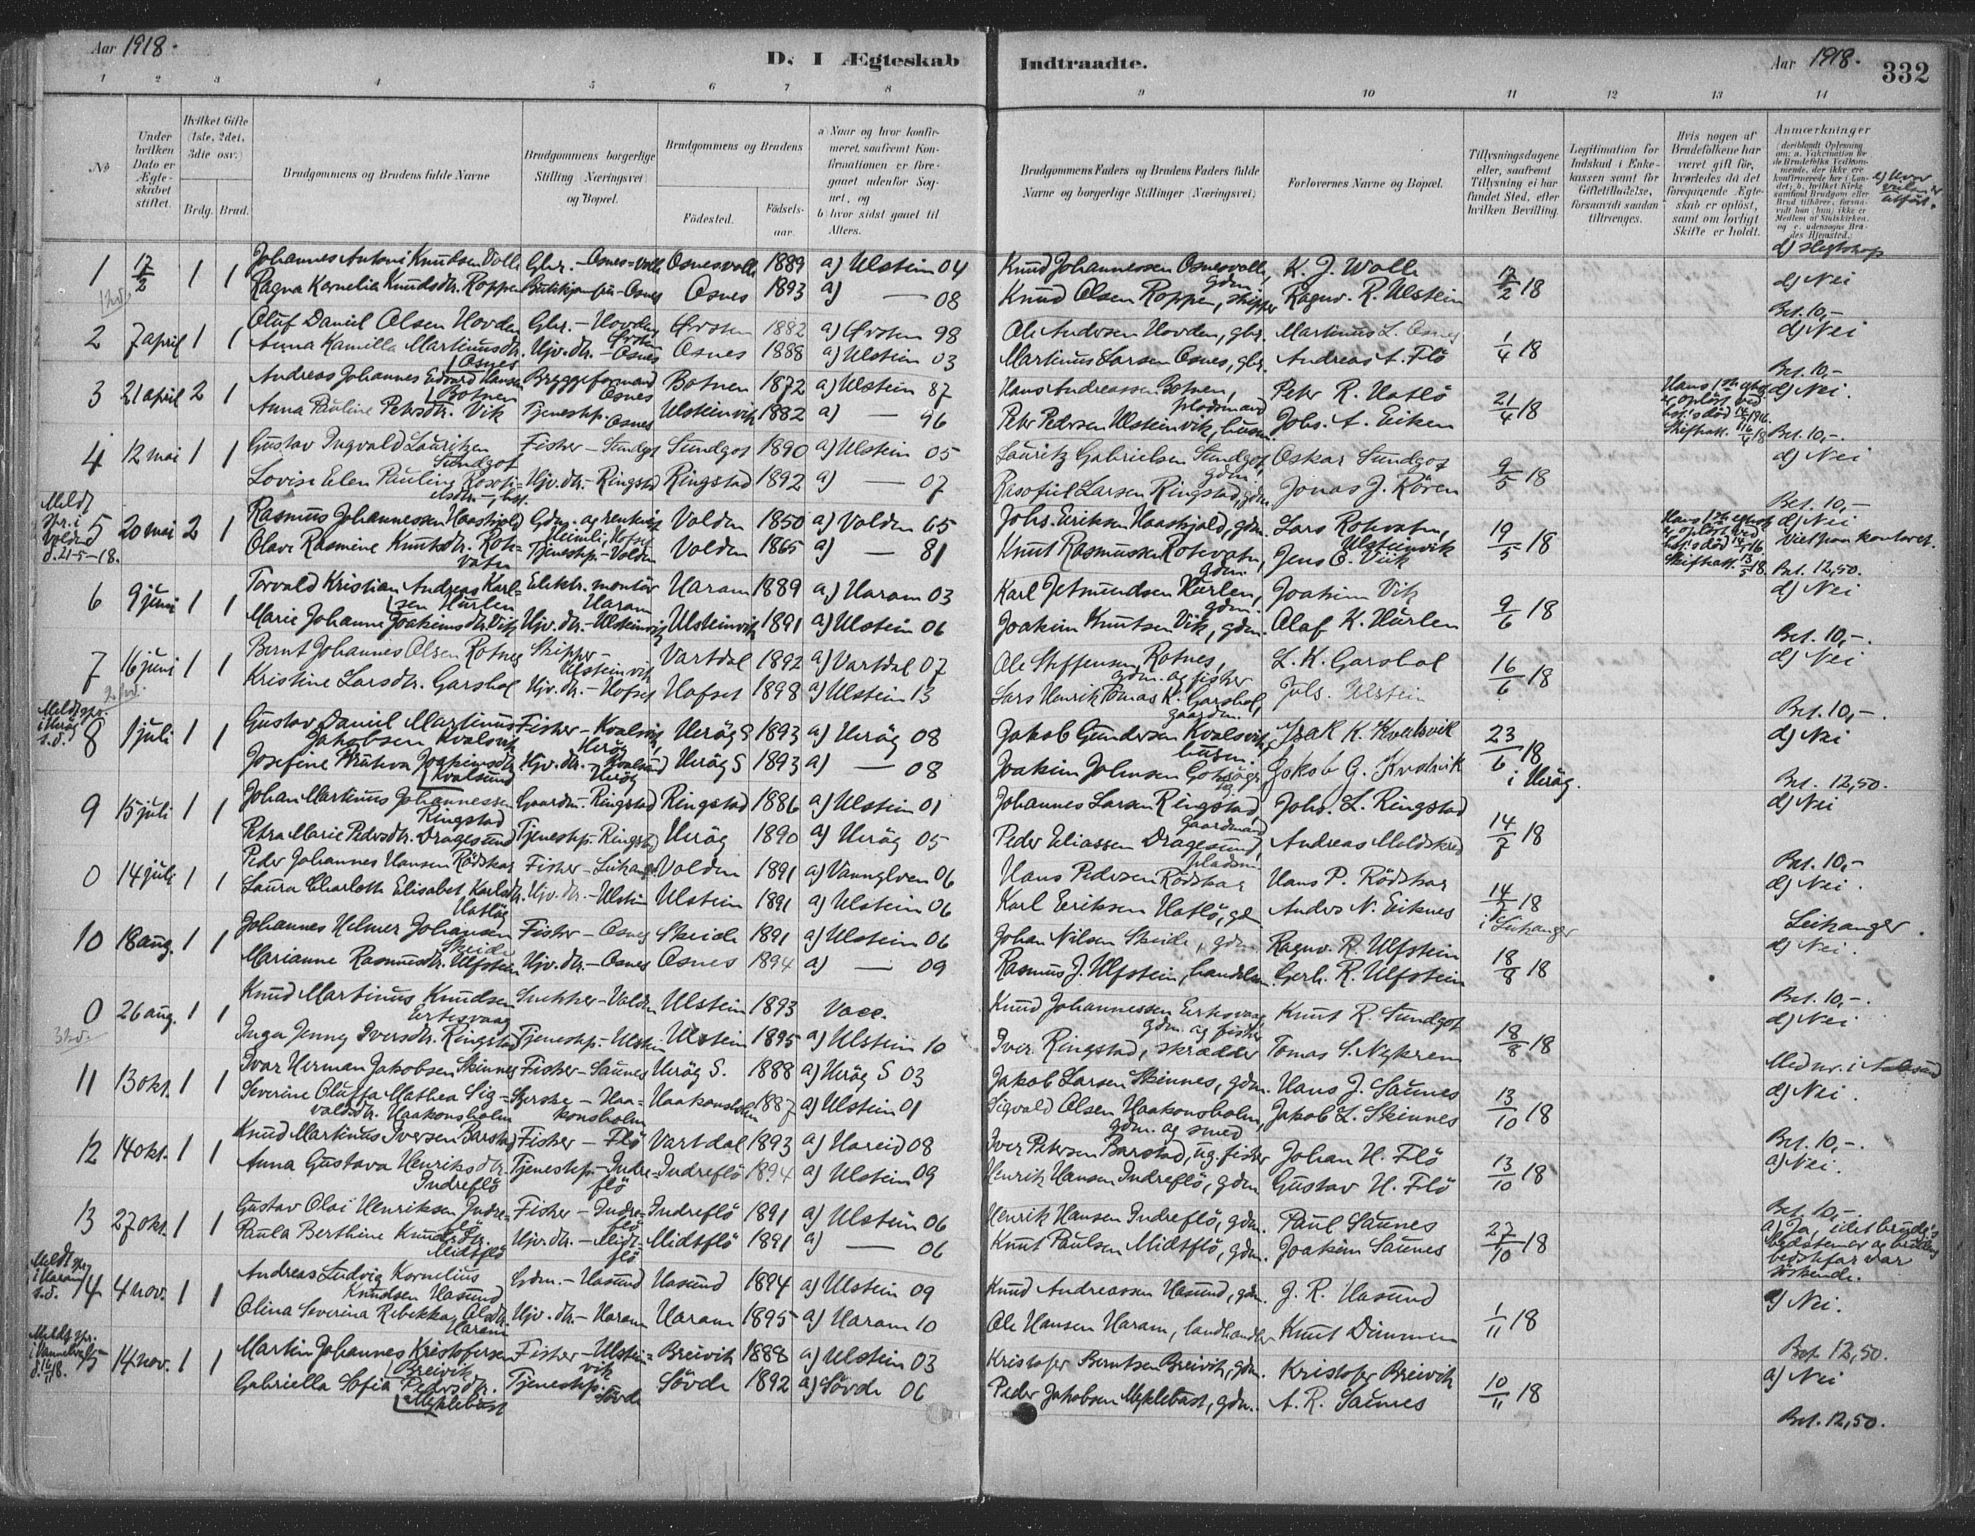 Aar 1918.
D. I Ægteskab
Indtraadte.
Aar 1918.
332
1 2 3 4 5 6 7 8
9 10 11 12 13 14
No
Under hvilken Dato er Ægteskabet stiftet.
Hvilket Gifte (1ste, 2det, 3die osv.)
Brdg. Brud.
Brudgommens og Brudens fulde Navne
Brudgommens borgerlige Stilling (Næringsvei) og Bopæl.
Brudgommens og Brudens
Fødested.
Fødselsaar.
a) Naar og hvor konfirmeret, saafremt Konfirmationen er foregaaet udenfor Sognet, og
b) hvor sidst gaaet til Alters.
Brudgommens Faders og Brudens Faders fulde Navne og borgerlige Stillinger (Næringsvei)
Forlovernes Navne og Bopæl.
Tillysningsdagene eller, saafremt Tillysning ei har fundet Sted, efter hvilken Bevilling.
Legitimation for Indskud i Enkekassen samt for Giftetilladelse, forsaavidt saadan tiltrænges.
Hvis nogen af Brudefolkene har været gift før, hvorledes da det foregaaende Ægteskab er opløst, samt om lovligt Skifte er holdt.
Anmærkninger
1 17/2 1 1 Johannes Antoni Knudsen Volle Gbr. - Osnes-volle Osnesvolle 1889 a) Ulstein 04 Knud Johannessen Osnesvolle, gdm. K. J. Wolle 17/2 18 d) Nei
Ragna Kornelia Knudsdtr. Roppen Osnes 1893 a) — 08 Knud Olsen Roppen, skipper Ragnv. R. Ulstein Bet. 10,-
2 7 april 1 1 Oluf Daniel Olsen Hovden Gbr. - Hovden Ørsten Ørsten 1882 a) Ørsten 98 Ole Andersen Hovden, gbr. Martinus L. Osnes 1/4 18 d) Nei
Anna Kamilla Martinusdtr. Osnes Hjv. dtr. - Osnes Osnes 1888 a) Ulstein 03 Martinus Larsen Osnes, gbr. Andreas A. Flö Bet. 10,-
3 21 april 2 1 Andreas Johannes Edvard Hansen Botnen Bryggeformand Osnes Botnen 1872 a) Ulstein 87 Hans Andreassen Botnen, pladsmand Peter R. Hatlö 21/4 18 d) Nei.
Anna Pauline Petersdtr. Vik Tjenestep. Osnes Ulsteinvik 1882 a) — 96 Petr Pedersen Ulsteinvik, husm. Johs. A. Eiken Bet. 10,-.
4 12 mai 1 1 Gustav Ingvald Lauritzen Sundgot Fisker - Sundgot Sundgot 1890 a) Ulstein 05 Lauritz Gabrielsen Sundgot, gdm. Oskar Sundgot 9/5 18 d) Nei
Lovise Elen Pauline Hjv. dtr. - Ringstad Ringstad 1892 a) — 07 Rasofiel Larsen Ringstad, gdm. Jonas J. Rören Bet. 10,-
Meldt spr. i Volden d. 21-5-18.
5 20 mai 2 1 Rasmus Johannessen Haaskjold Gdm. og enkem. Volden 1850 a) Volden 65 Johs. Eriksen Haaskjold, gdm. Lars Rotevatn, Ulsteinvik 19/5 18 d) Nei
Olave Rasmine Knutsdtr. Rotevatn Tjenestep. - Volden Volden 1865 a) — 81 Knut Rasmussen Rotevatn, gdm. Jens E. Vik Bet. 12,50.
6 9 juni 1 1 Torvald Kristian Andreas Karlsen Hurlen Elektr. montör Haram Haram 1889 a) Haram 03 Karl Jetmundsen Hurlen, gdm. Joakim Vik 9/6 18 d) Nei
Marie Johanne Joakimsdtr. Vik Hjv. dtr. - Ulsteinvik Ulsteinvik 1891 a) Ulstein 06 Joakim Knutsen Vik, gdm. Olaf K. Hurlen Bet. 10,-.
7 16 juni 1 1 Bernt Johannes Olsen Rotnes Skipper - Ulsteinvik Vartdal 1892 a) Vartdal 07 Ole Steffensen Rotnes, gdm. og fisker L. K. Garshol 16/6 18 d) Nei
Kristine Larsdtr. Garshol Hjv. dtr. - Hofset Hofset 1898 a) Ulstein 13 Lars Henrik Tomas K. Garshol, gaardm. Johs. Ulstein Bet. 10,-.
Meldt spr. i Heröy s. d.
8 1 juli 1 1 Gustav Daniel Martinus Jakobsen Kvalsvik Fisker - Kvalsvik, Heröy Heröy S 1893 a) Heröy 08 Jakob Gundersen Kvalsvik, husm. Isak K. Kvalsvik 23/6 18 i Heröy. d) Nei
Josefine Joakimsdtr. Kvalsund Hjv. dtr. - Kvalsund Heröy Heröy S 1893 a) — 08 Joakim Johnsen Jakob G. Kvalsvik Bet. 12,50.
9 15 juli 1 1 Johan Martinus Johannessen Ringstad Gaardm. - Ringstad Ringstad 1886 a) Ulstein 01 Johannes Larsen Ringstad, gaardmand Johs. L. Ringstad 14/7 18 d) Nei
Petra Marie Pedersdtr. Dragesund Tjenestep. Ringstad Heröy 1890 a) Heröy 05 Peder Eliassen Dragesund, pladsm. Andreas Meldskred Bet. 10,-
0 14 juli 1 1 Peder Johannes Hansen Rödskar Fisker - Leikanger Volden 1891 a) Vannelven 06 Hans Pedersen Rödskar Hans P. Rödskar 14/7 18 i Leikanger d) Nei.
Laura Charlotte Elisabet Karlsdtr. Hatlö Hjv. dtr. - Ulstein Ulstein 1891 a) Ulstein 06 Karl Eriksen Hatlö, gdm Anders N. Eiknes Leikanger.
10 18 aug. 1 1 Johannes Helmer Johansen Skeide Fisker - Osnes Skeide 1891 a) Ulstein 06 Johan Nilsen Skeide, gdm. Ragnv. R. Ulfstein 18/8 18 d) Nei.
Marianne Rasmusdtr. Ulfstein Hjv. dtr. - Osnes Osnes 1894 a) — 09 Rasmus J. Ulfstein, handelsm. Gerh. R. Ulfstein Bet. 10,-.
0 26 aug. 1 1 Knud Martinus Knudsen Eitesvaag Snekker - Volden Ulstein 1893 Vacc. Knud Johannessen Eitesvaag gdm. og fisker Knut R. Sundgot 18/8 18 d) Nei
Inga Jenny Iversdtr. Ringstad Tjenestep. - Ulstein Ulstein 1895 a) Ulstein 10 Iver Ringstad, skrædder Tomas S. Nykrem Med nr. i Aalesund
11 13 okt. 1 1 Ivar Herman Jakobsen Skinnes Fisker - Saunes Heröy S. 1888 a) Heröy S 03 Jakob Larsen Skinnes, gdm. Hans J. Saunes 13/10 18 d) Nei.
Severine Oluffa Mathea Sigvaldsdtr. Haakonsholm Syerske - Haakonsholm Haakonsholm 1887 a) Ulstein 01 Sigvald Olsen Haakonsholm, gdm. og smed Jakob L. Skinnes Bet. 10,-.
12 14 okt. 1 1 Knud Martinus Iversen Barstad Fisker - Flö Vartdal 1893 a) Hareid 08 Iver Petersen Barstad, ug. fisker Johan H. Flö 13/10 18 a) Nei.
Anna Gustava Henriksdtr. Indreflö Tjenestep. - Indreflö Indreflö 1894 a) Ulstein 09 Henrik Hansen Indreflö, gdm Gustav H. Flö Bet. 10,-.
13 27 okt. 1 1 Gustav Olai Henriksen Indreflö Fisker - Indreflö Indreflö 1891 a) Ulstein 06 Henrik Hansen Indreflö, gdm. Paul Saunes 27/10 18 a) Ja, idet brudg's bedstemor og brudens bedstefar var söskende.
Paula Berthine Knudsdtr. Midtflö Hjv. dtr. - Midtflö Midtflö 1891 a) — 06 Knut Paulsen Midtflö, gdm. Joakim Saunes
Meldt spr. i Haram s. d.
14 4 nov. 1 1 Andreas Ludvig Kornelius Knudsen Hasund Gdm. - Hasund Hasund 1894 a) Ulstein 09 Knud Andreassen Hasund, gdm. J. R. Hasund 1/11 18 a) Nei.
Olina Severina Rebekka Olsdtr. Haram Hjv. dtr. - Haram Haram 1895 a) Haram 10 Ole Hansen Haram, landhandler Knut Dimmen Bet. 12,50.
15 14 nov. 1 1 Martin Johannes Kristofersen Breivik Fisker - Ulsteinvik Breivik 1888 a) Ulstein 03 Kristofer Berntsen Breivik, gdm. Kristofer Breivik 10/11 18 a) Nei
Gabriella Sofia Pedersdtr. Myklebust Tjenestep. Sövde Sövde 1892 a) Sövde 06 Peder Jakobsen Myklebust, gdm. A. R. Saunes Bet. 12,50.